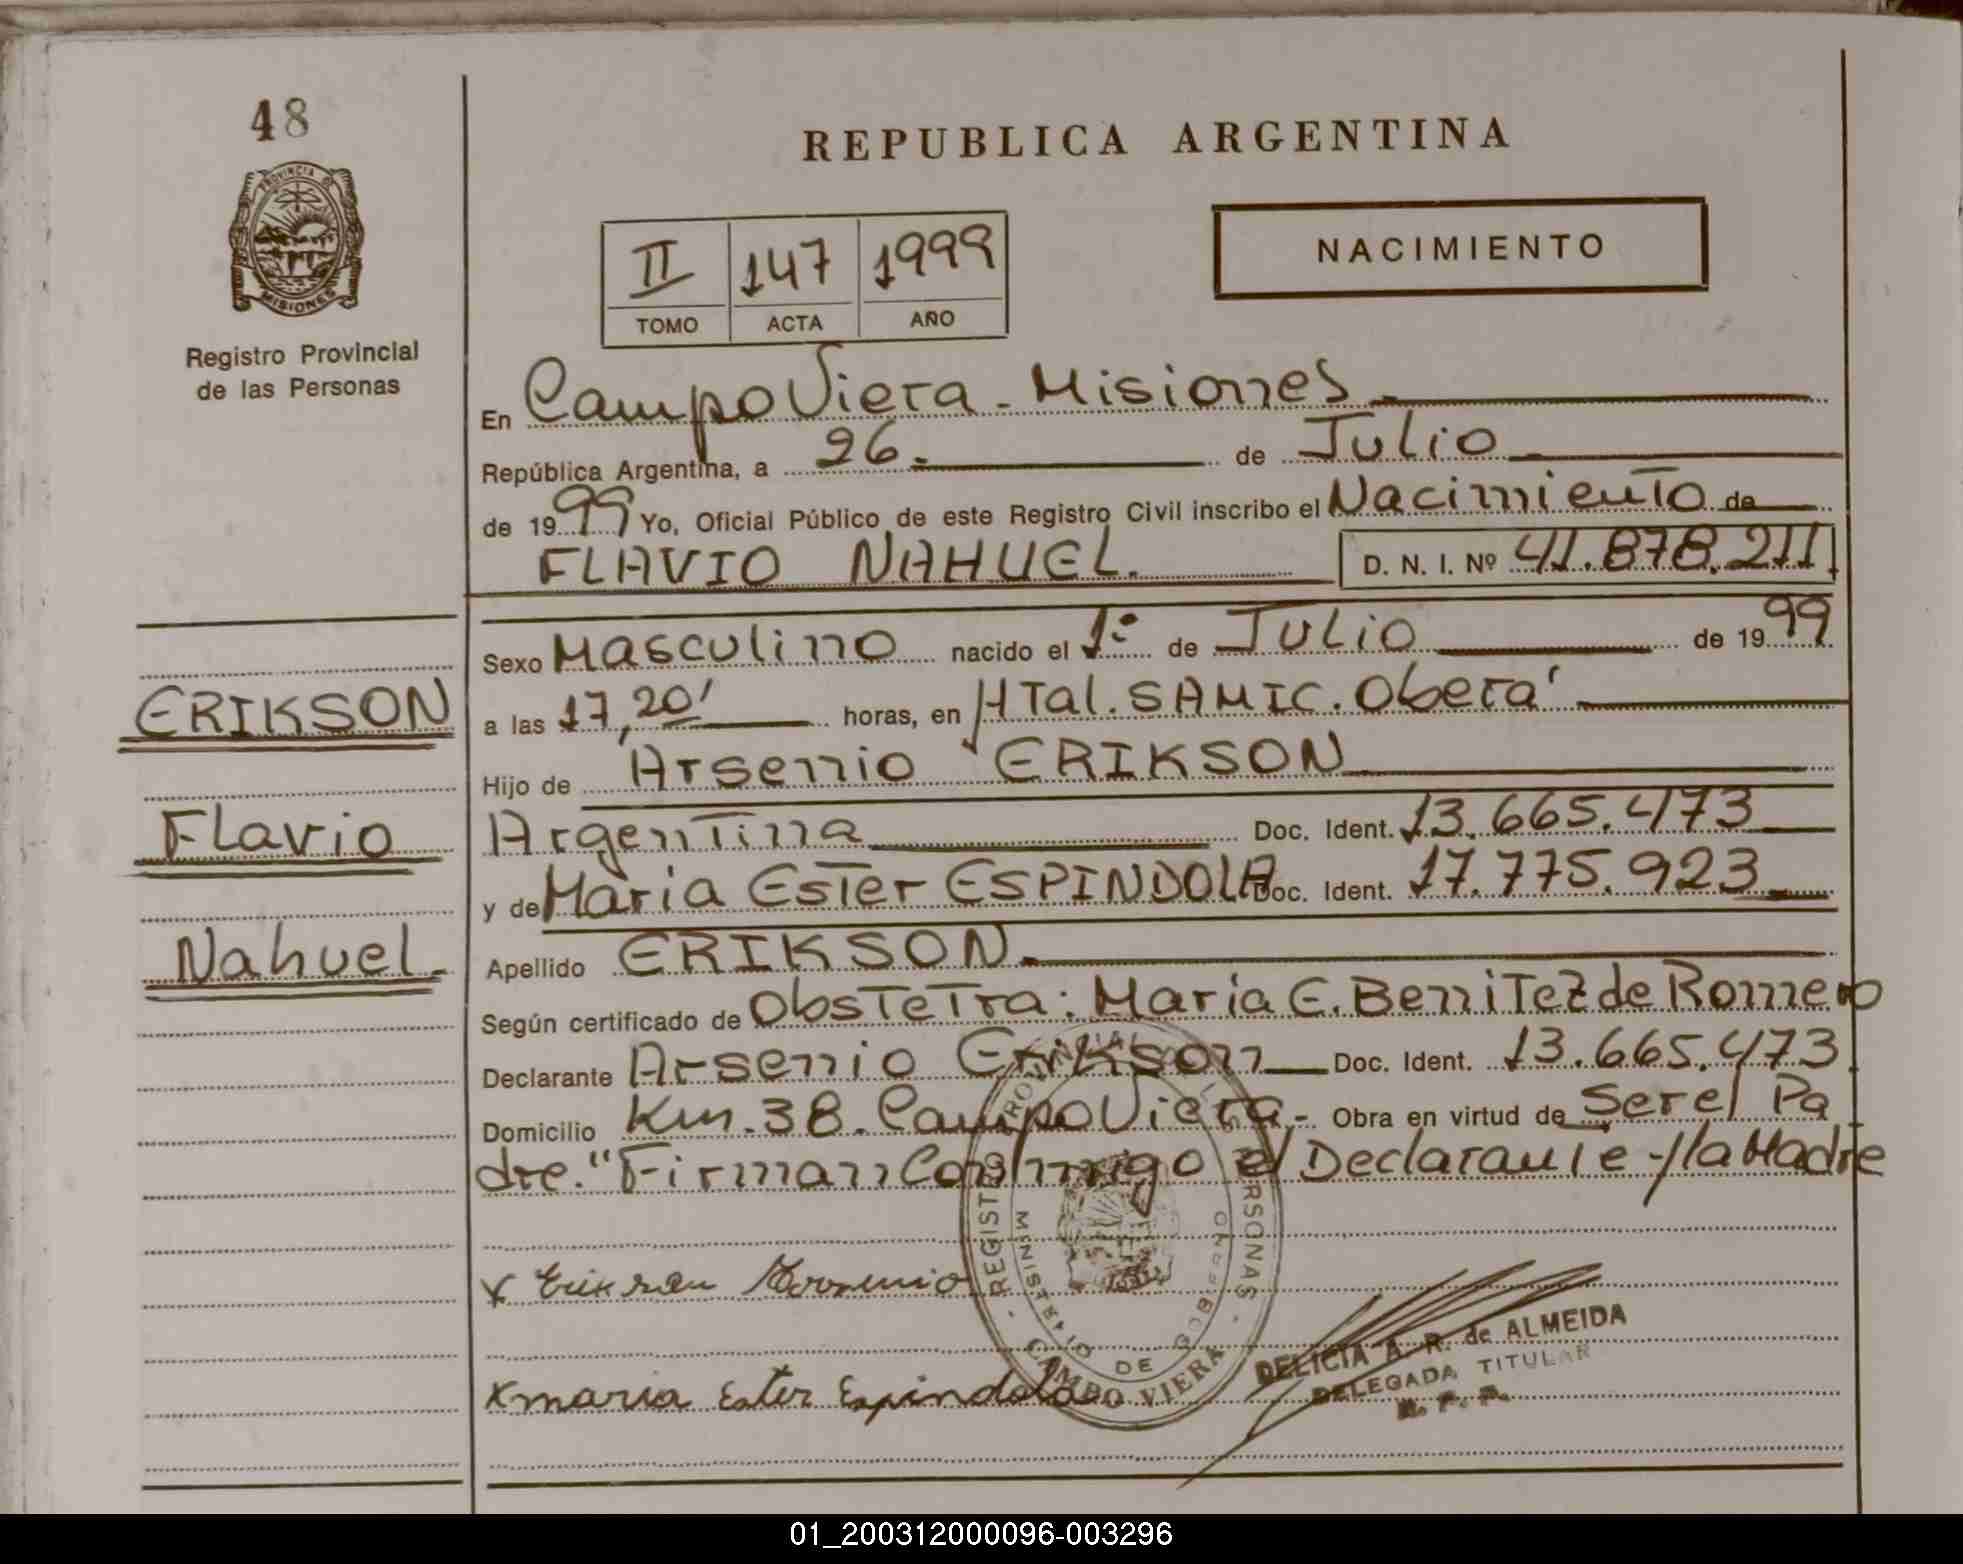 48
PROVINCIA DE
MISIONES
Registro Provincial
de las Personas
REPUBLICA ARGENTINA
II 147 1999
TOMO ACTA AÑO
NACIMIENTO
En Campo Viera - Misiones
República Argentina, a 26. de Julio
de 1999 Yo, Oficial Público de este Registro Civil inscribo el Nacimiento de
FLAVIO NAHUEL. D. N. I. Nº 41.878.211
Sexo Masculino nacido el 1º de Julio de 1999
ERIKSON
a las 17,20' horas, en HTal. SAMIC. Oberá
Hijo de Arsenio ERIKSON
Flavio
Argentina Doc. Ident. 13.665.473
y de Maria Ester ESPINDOLA Doc. Ident. 17.775.923
Nahuel
Apellido ERIKSON
Según certificado de Obstetra: Maria E. Benitez de Romero
Declarante Arsenio Erikson Doc. Ident. 13.665.473
Domicilio Km. 38. Campo Viera - Obra en virtud de Ser el Pa
dre. "Firman Conmigo el Declarante y la Madre
x Erikson Arsenio
REGISTRO PROVINCIAL DE LAS PERSONAS
MINISTERIO DE GOBIERNO
CAMPO VIERA
DELICIA A. R. de ALMEIDA
DELEGADA TITULAR
x maria Ester Espindola
01_200312000096-003296